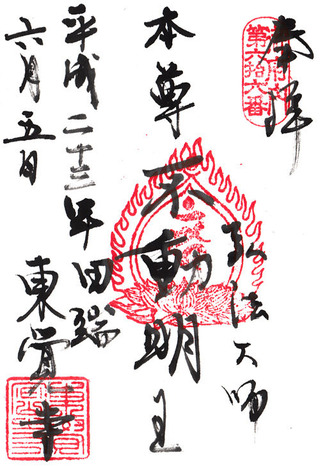 奉拝
第六拾六番
弘法大師
本尊 不動明王
平成二十三年 田端
六月五日
東覚寺